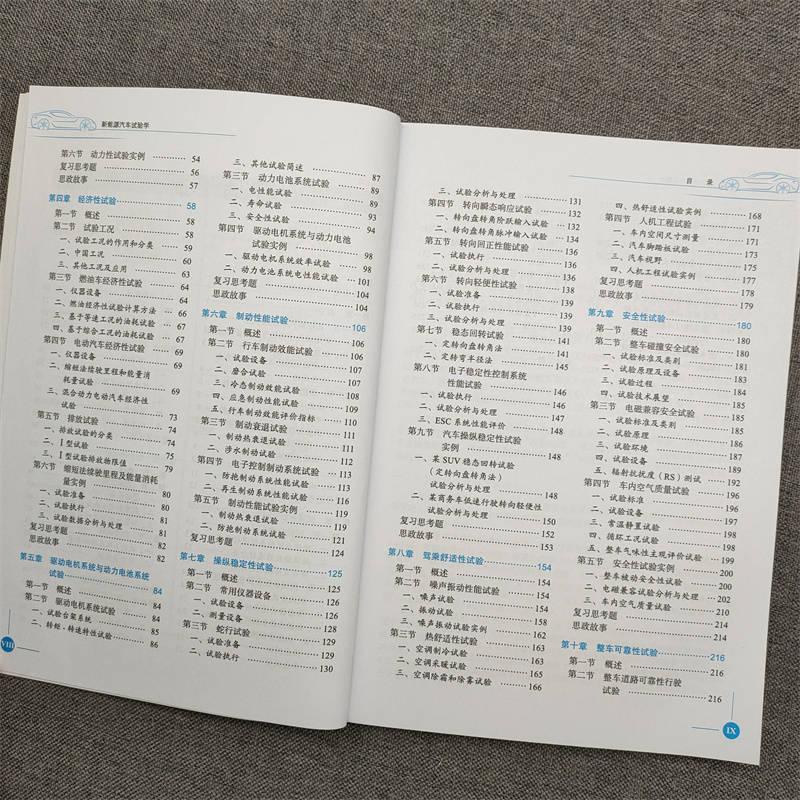 新能源汽车试验学
第六节 动力性试验实例 ………… 54
复习思考题 ………… 56
思政故事 ………… 57
第四章 经济性试验 ………… 58
第一节 概述 ………… 58
第二节 试验工况 ………… 59
一、试验工况的作用和分类 ………… 59
二、中国工况 ………… 60
三、其他工况及应用 ………… 63
第三节 燃油车经济性试验 ………… 64
一、仪器设备 ………… 64
二、燃油经济性试验计算方法 ………… 66
三、基于等速工况的油耗试验 ………… 67
四、基于综合工况的油耗试验 ………… 67
第四节 电动汽车经济性试验 ………… 69
一、仪器设备 ………… 69
二、缩短法续驶里程和能量消
耗量试验 ………… 69
三、混合动力电动汽车经济性
试验 ………… 73
第五节 排放试验 ………… 74
一、排放试验的分类 ………… 74
二、Ⅰ型试验 ………… 75
三、Ⅰ型试验排放物限值 ………… 79
第六节 缩短法续驶里程及能量消耗
量实例 ………… 80
一、试验准备 ………… 80
二、试验执行 ………… 81
三、试验数据分析与处理 ………… 81
复习思考题 ………… 82
思政故事 ………… 82
第五章 驱动电机系统与动力电池系统
试验 ………… 84
第一节 概述 ………… 84
第二节 驱动电机系统试验 ………… 84
一、试验台架系统 ………… 85
二、转矩-转速特性试验 ………… 86
三、其他试验简述 ………… 87
第三节 动力电池系统试验 ………… 89
一、电性能试验 ………… 89
二、寿命试验 ………… 93
三、安全性试验 ………… 94
第四节 驱动电机系统与动力电池
试验实例 ………… 98
一、驱动电机系统效率试验 ………… 98
二、动力电池系统电性能试验 ………… 101
复习思考题 ………… 104
思政故事 ………… 104
第六章 制动性能试验 ………… 106
第一节 概述 ………… 106
第二节 行车制动效能试验 ………… 107
一、试验设备 ………… 107
二、磨合试验 ………… 107
三、冷态制动效能试验 ………… 108
四、应急制动性能试验 ………… 109
五、行车制动效能评价指标 ………… 110
第三节 制动衰退试验 ………… 111
一、制动热衰退试验 ………… 111
二、涉水制动试验 ………… 112
第四节 电子控制制动系统试验 ………… 113
一、防抱制动系统性能试验 ………… 113
二、再生制动系统性能试验 ………… 116
第五节 制动性能试验实例 ………… 119
一、制动热衰退试验 ………… 119
二、防抱制动系统试验 ………… 121
复习思考题 ………… 124
第七章 操纵稳定性试验 ………… 125
第一节 概述 ………… 125
第二节 常用仪器设备 ………… 126
一、试验设备 ………… 126
二、测量设备 ………… 128
第三节 蛇行试验 ………… 129
一、试验准备 ………… 129
二、试验执行 ………… 130
VIII
目 录
三、试验分析与处理 ………… 131
第四节 转向瞬态响应试验 ………… 132
一、转向盘转角阶跃输入试验 ………… 132
二、转向盘转角脉冲输入试验 ………… 134
第五节 转向回正性能试验 ………… 136
一、试验执行 ………… 136
二、试验分析与处理 ………… 136
第六节 转向轻便性试验 ………… 138
一、试验准备 ………… 139
二、试验执行 ………… 139
三、试验分析与处理 ………… 139
第七节 稳态回转试验 ………… 141
一、定转向盘转角法 ………… 141
二、定转弯半径法 ………… 145
第八节 电子稳定性控制系统
性能试验 ………… 146
一、试验执行 ………… 146
二、试验分析与处理 ………… 147
三、ESC系统性能评价 ………… 148
第九节 汽车操纵稳定性试验
实例 ………… 148
一、某SUV稳态回转试验
（定转向盘转角法）
试验分析与处理 ………… 148
二、某商务车低速行驶转向轻便性
试验分析与处理 ………… 150
复习思考题 ………… 152
思政故事 ………… 153
第八章 驾乘舒适性试验 ………… 154
第一节 概述 ………… 154
第二节 噪声振动性能试验 ………… 154
一、噪声试验 ………… 154
二、振动试验 ………… 158
三、噪声振动试验实例 ………… 162
第三节 热舒适性试验 ………… 163
一、空调制冷试验 ………… 163
二、空调采暖试验 ………… 165
三、空调除霜和除雾试验 ………… 166
四、热舒适性试验实例 ………… 168
第四节 人机工程试验 ………… 171
一、车内空间尺寸测量 ………… 171
二、汽车脚踏板试验 ………… 173
三、汽车视野 ………… 175
四、人机工程试验实例 ………… 177
复习思考题 ………… 178
思政故事 ………… 179
第九章 安全性试验 ………… 180
第一节 概述 ………… 180
第二节 整车碰撞安全试验 ………… 180
一、试验标准及类别 ………… 181
二、试验原理及设备
三、试验过程
四、试验技术展望
第三节 电磁兼容安全试验
一、试验标准及类别
二、试验原理
三、试验环境
四、试验设备
五、辐射抗扰度（RS）测试 ………… 193
第四节 车内空气质量试验 ………… 196
一、试验标准 ………… 196
二、试验设备
三、常温静置试验
四、循环工况试验
五、整车气味性主观评价试验 ………… 199
第五节 安全性试验实例 ………… 200
一、整车被动安全性试验 ………… 200
二、电磁兼容试验分析与处理 ………… 202
三、车内空气质量试验 ………… 210
复习思考题 ………… 214
思政故事 ………… 214
第十章 整车可靠性试验 ………… 216
第一节 概述 ………… 216
第二节 整车道路可靠性行驶
试验 ………… 216
IX